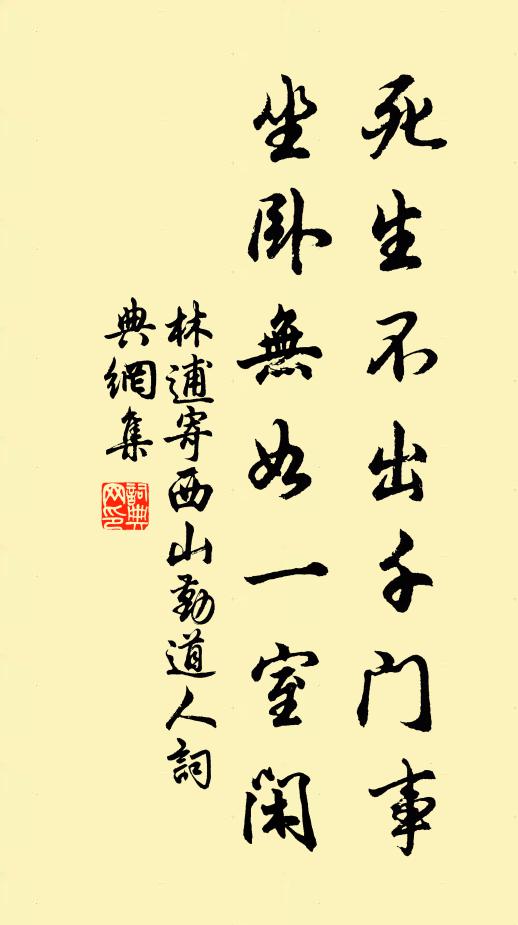 死生不出千门事
坐卧無如一室閑
林逋寄西山勤道人詞
典網集
詞典網印